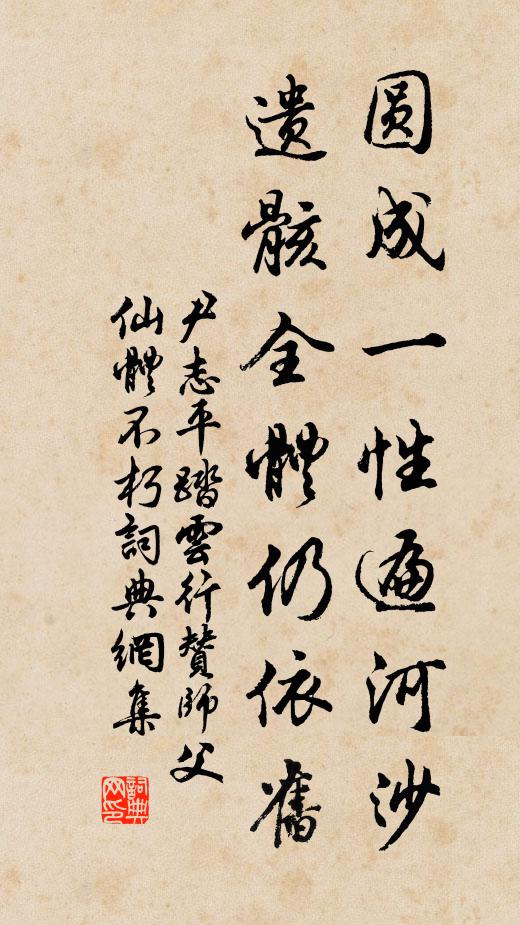 圆成一性遍河沙
遗骸全體仍依舊
尹志平踏雲行赞師父
仙體不朽詞典網集
詞典
网印